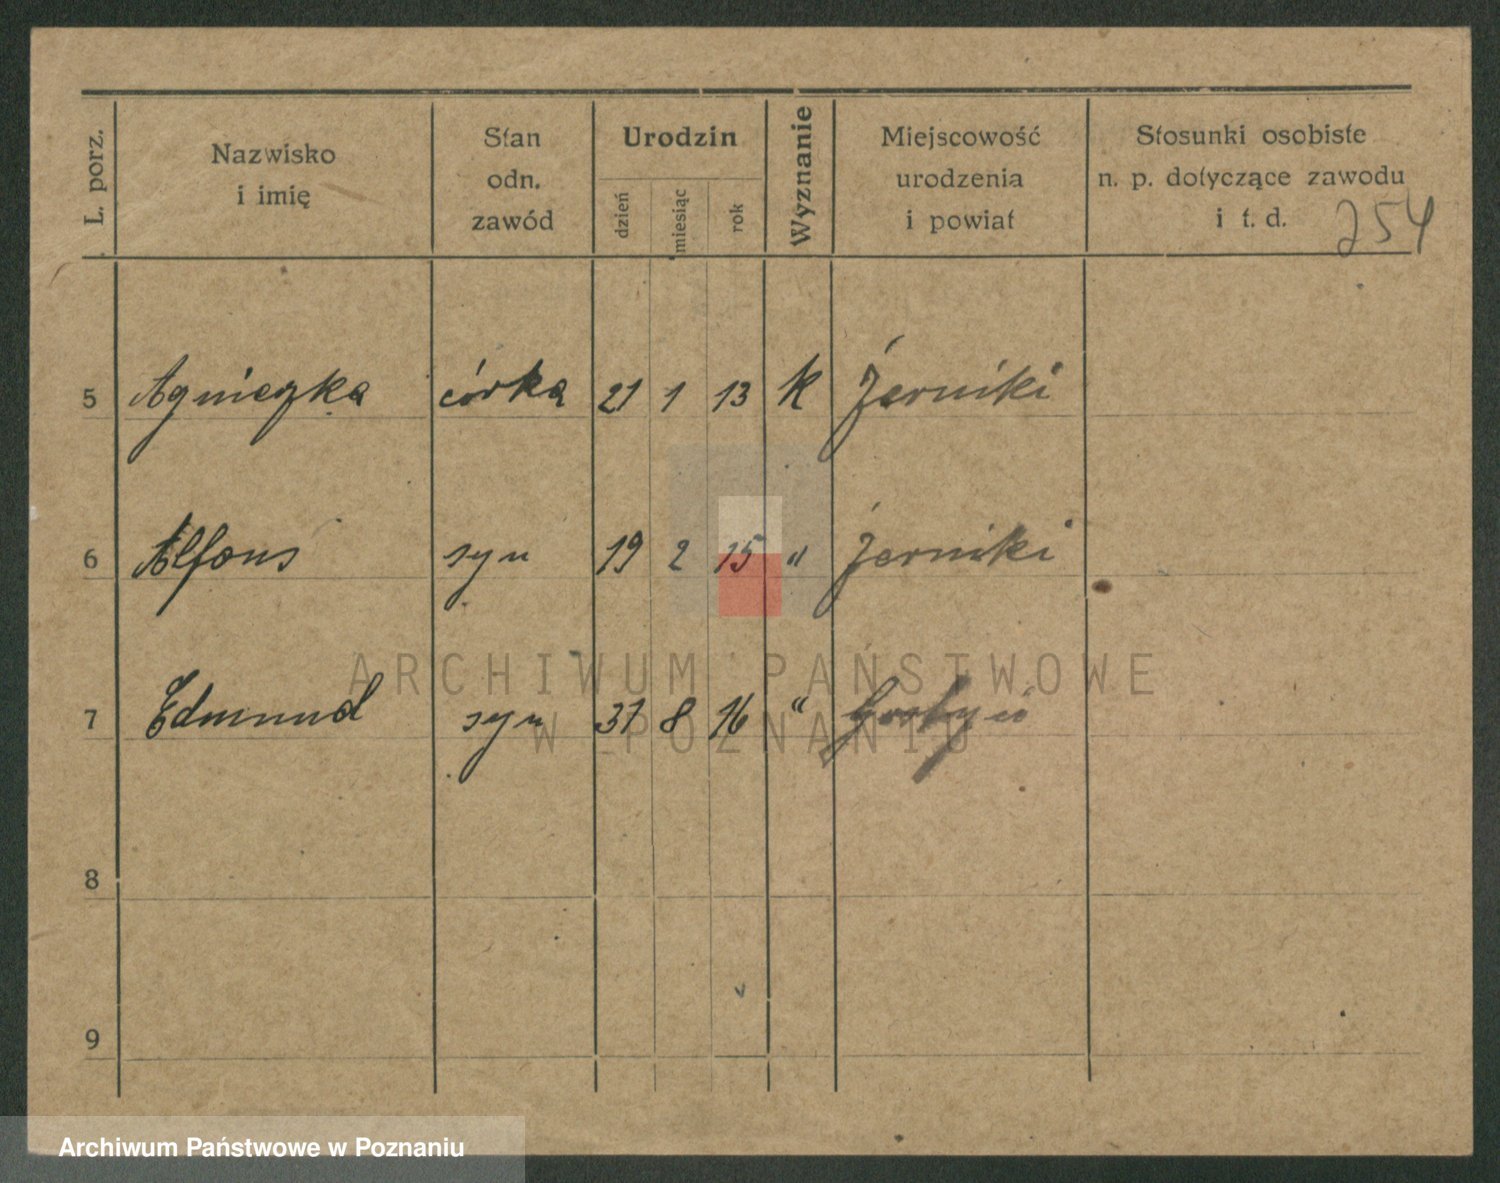 L. porz.
Nazwisko
i imię
Stan
odn.
zawód
Urodzin
dzień
miesiąc
rok
Wyznanie
Miejscowość
urodzenia
i powiat
Stosunki osobiste
n. p. dotyczące zawodu
i t. d.
254
5 Agnieszka córka 21 1 13 k Żerniki
6 Alfons syn 19 2 15 " Żerniki
7 Edmund syn 31 8 16 "
8
9
ARCHIWUM PAŃSTWOWE
W POZNANIU
Archiwum Państwowe w Poznaniu